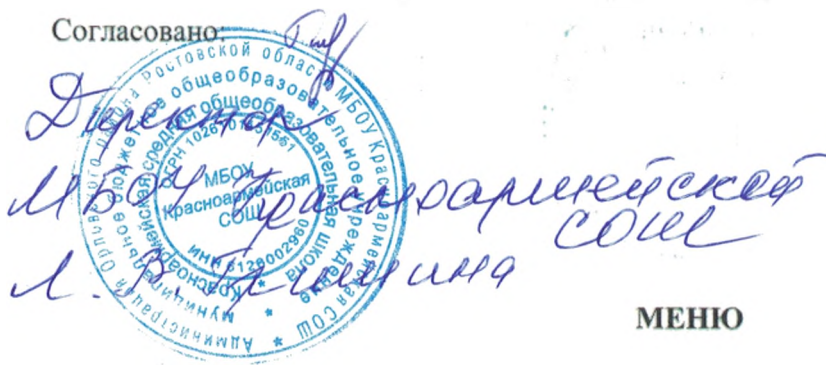 Согласовано:
Директор
МБОУ Красноармейской
СОШ
Л. В.
Администрация Орловского района Ростовской области МБОУ Красноармейская СОШ
Муниципальное бюджетное общеобразовательное учреждение
Красноармейская средняя общеобразовательная школа
МБОУ
Красноармейская
СОШ
МЕНЮ